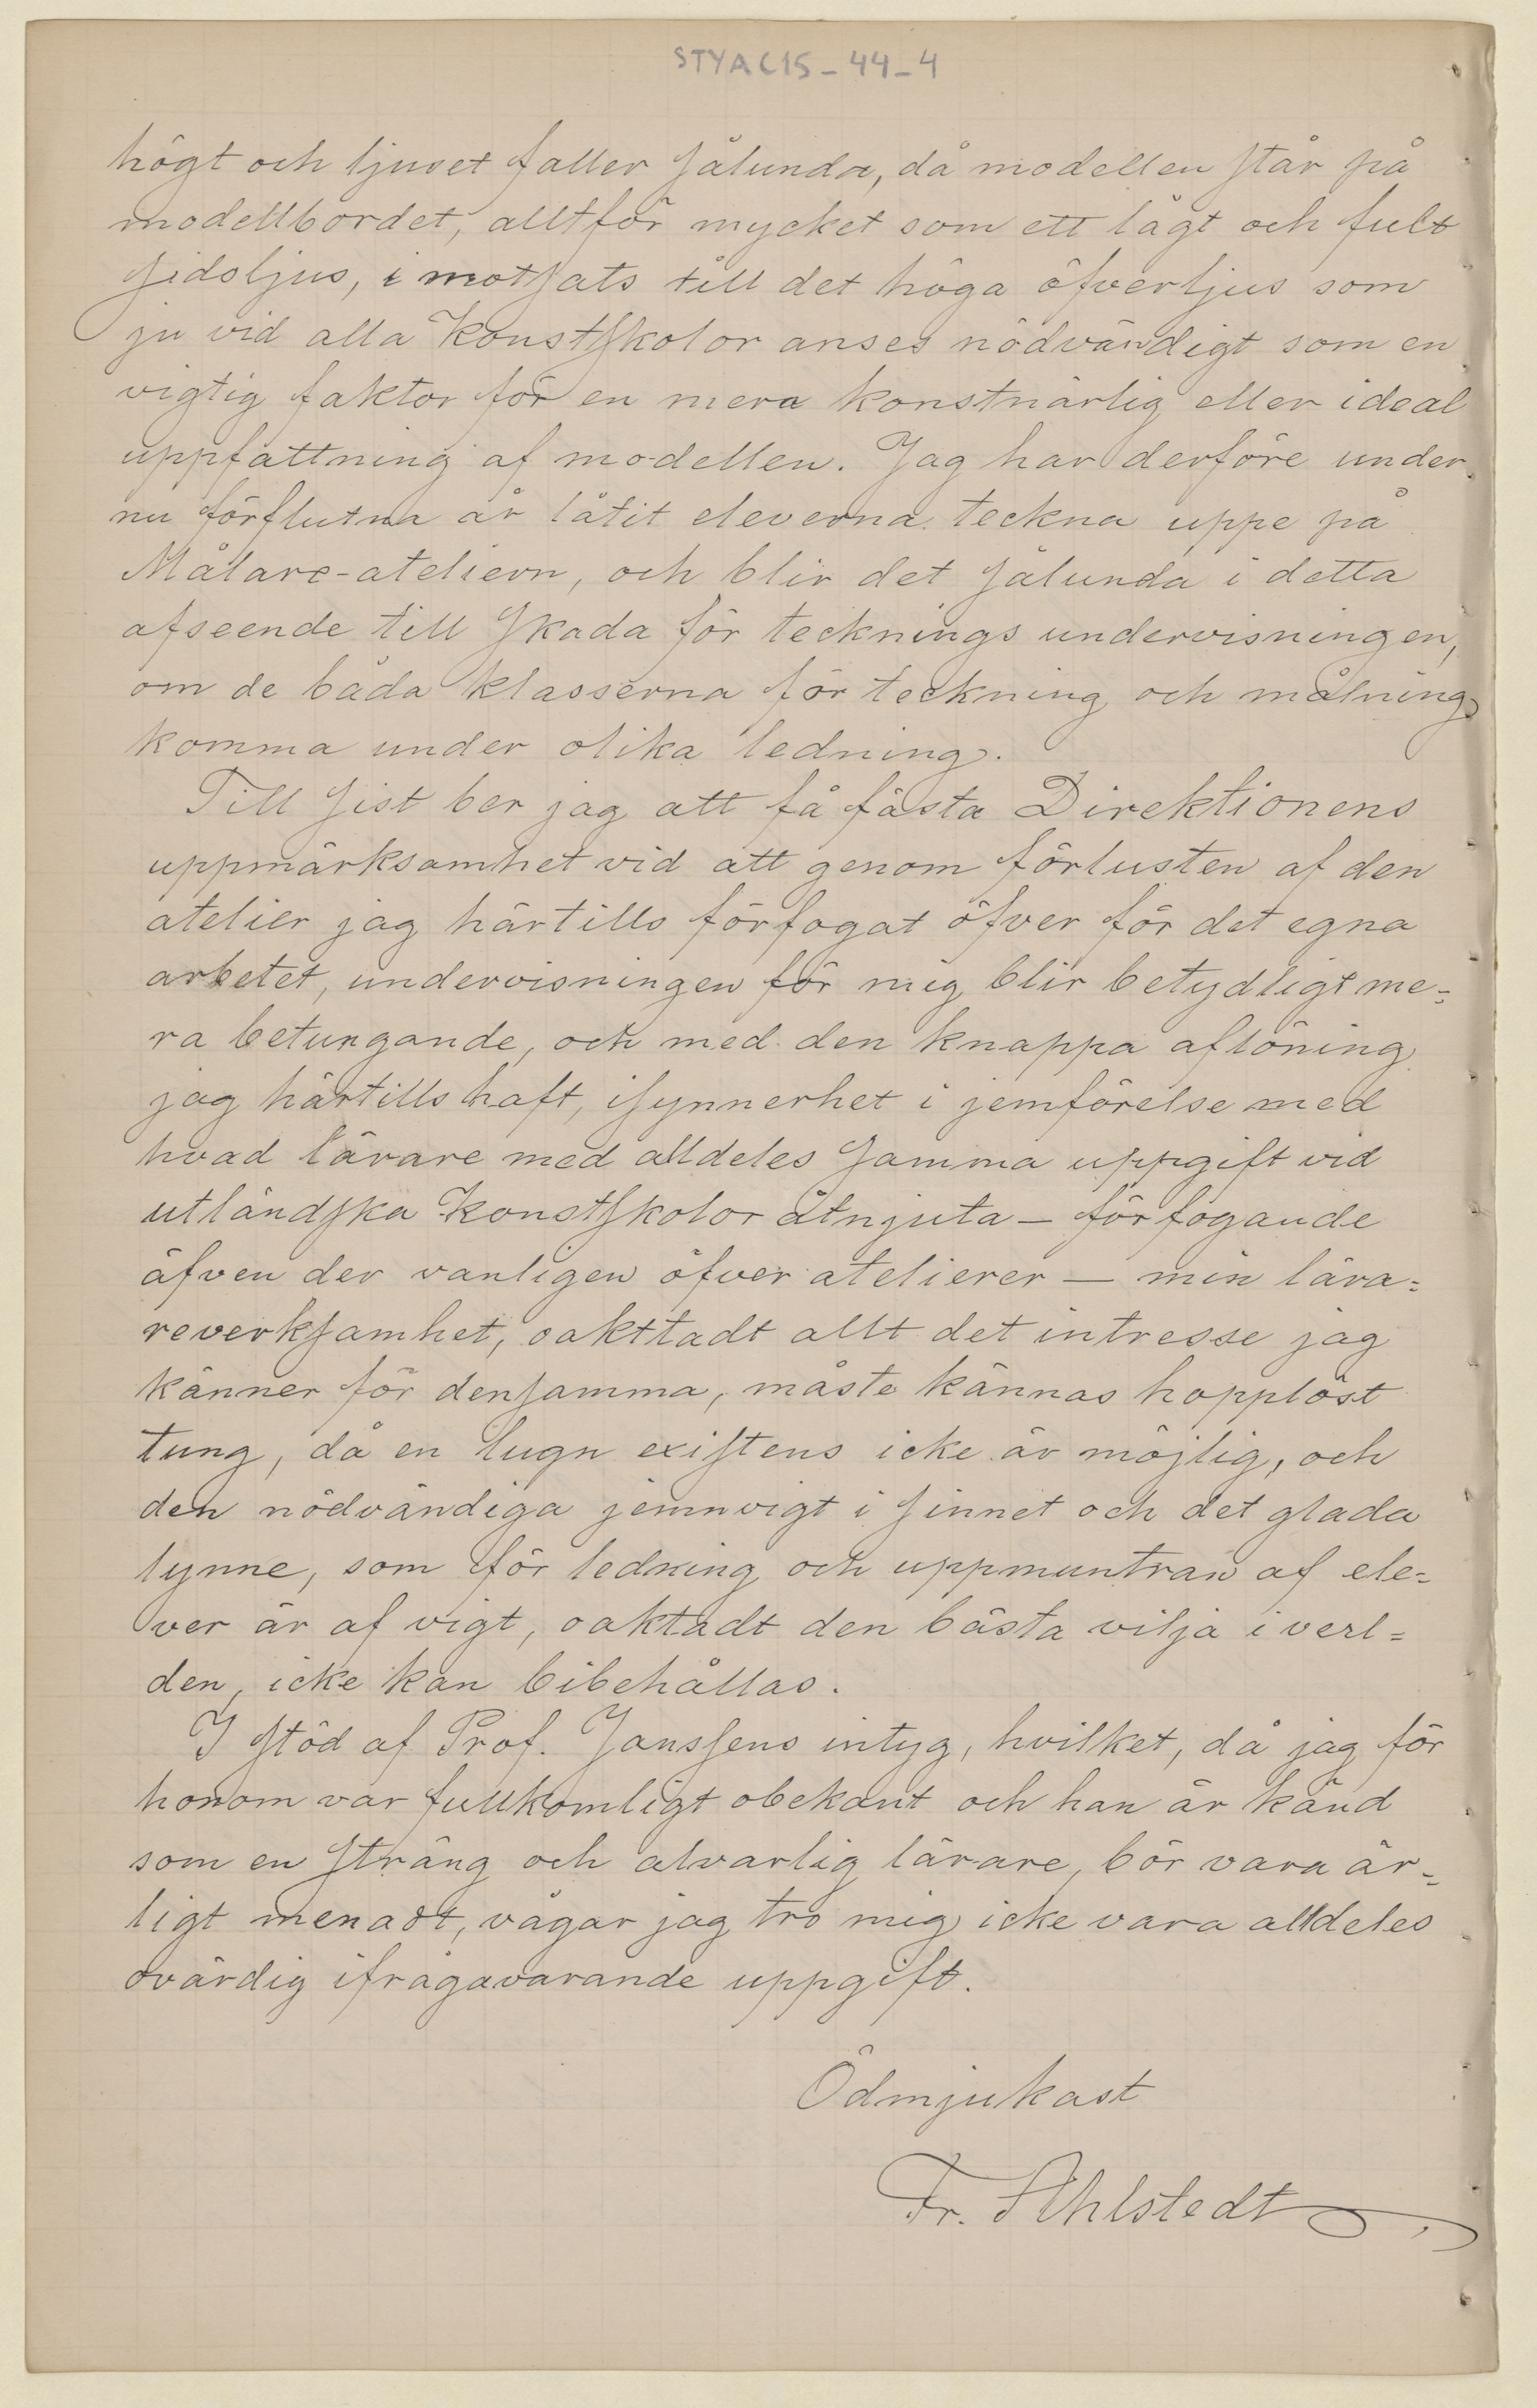 STYA C15 - 44 - 4
högt och ljuset faller sålunda, då modellen står på
modellbordet, alltför mycket som ett lågt och fult
sidoljus, i motsats till det höga öfverljus som
ju vid alla konstskolor anses nödvändigt som en
vigtig faktor för en mera konstnärlig eller ideal
uppfattning af modellen. Jag har derföre under
nu förflutna år låtit eleverna teckna uppe på
Målare-ateliern, och blir det sålunda i detta
afseende till skada för tecknings undervisningen,
om de båda klasserna för teckning och målning
komma under olika ledning.
Till sist ber jag att få fästa Direktionens
uppmärksamhet vid att genom förlusten af den
atelier jag härtills förfogat öfver för det egna
arbetet, undervisningen för mig blir betydligt me=
ra betungande, och med den knappa aflöning
jag härtills haft, isynnerhet i jemförelse med
hvad lärare med alldeles samma uppgift vid
utländska konstskolor åtnjuta — förfogande
äfven der vanligen öfver atelierer — min lära=
reverksamhet, oakttadt allt det intresse jag
känner för densamma, måste kännas hopplöst
tung, då en lugn existens icke är möjlig, och
den nödvändiga jemnvigt i sinnet och det glada
lynne, som för ledning och uppmuntran af ele=
ver är af vigt, oaktadt den bästa vilja i verl=
den, icke kan bibehållas.
I stöd af Prof. Janssens intyg, hvilket, då jag för
honom var fullkomligt obekant och han är känd
som en sträng och alvarlig lärare, bör vara är=
ligt menadt, vågar jag tro mig icke vara alldeles
ovärdig ifrågavarande uppgift.
Ödmjukast
Fr. Ahlstedt